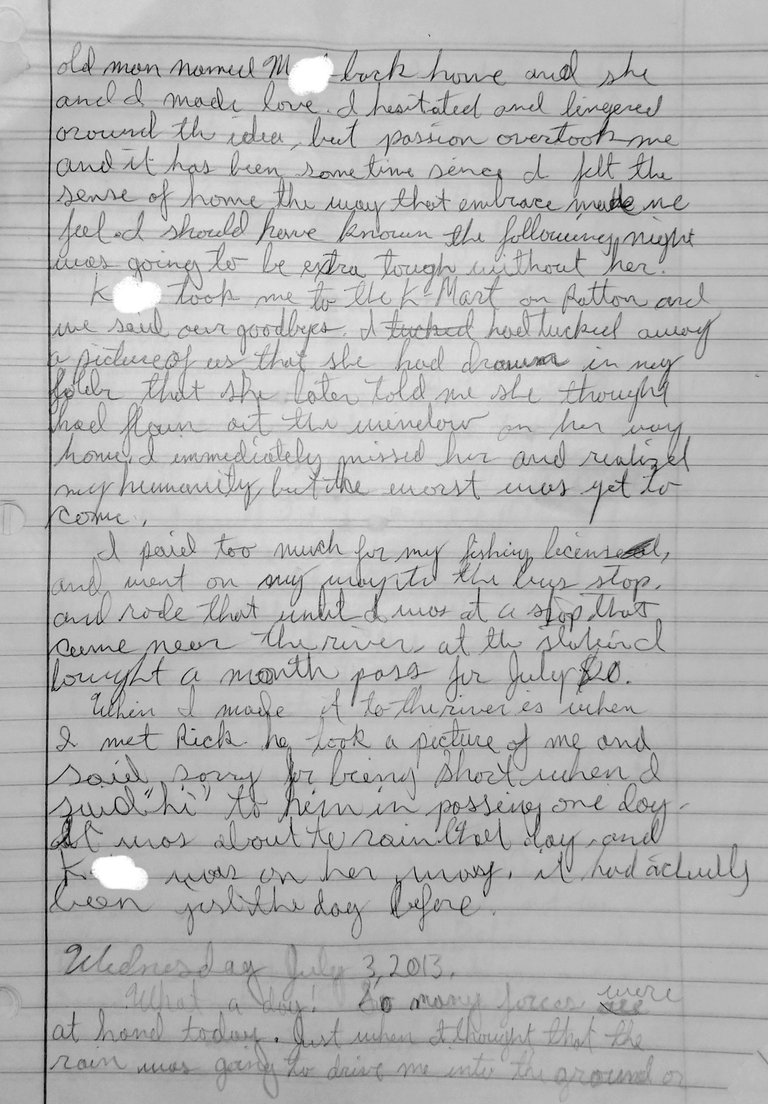 old man named M back home and she
and I made love. I hesitated and lingered
around th idea, but passion overtook me
and it has been some time since I felt the
sense of home the way that embrace made me
feel. I should have known the following night
was going to be extra tough without her.
K took me to the K-Mart on Patton and
we said our goodbyes. I tucked had tucked away
a picture of us that she had drawn in my
folder that she later told me she thought
had flown out the window on her way
home. I immediately missed her and realized
my humanity, but the worst was yet to
come.
I paid too much for my fishing license,
and went on my way to the bus stop.
and rode that until I was at a stop that
came near the river, at the station I
bought a month pass for July $20.
When I made it to the river is when
I met Rick. he took a picture of me and
said sorry for being short when I
said "hi" to him in passing one day.
It was about to rain that day and
K was on her way. it had actually
been just the day before.
Wednesday July 3, 2013.
What a day! So many forces were
at hand today. Just when I thought that the
rain was going to drive me into the ground or